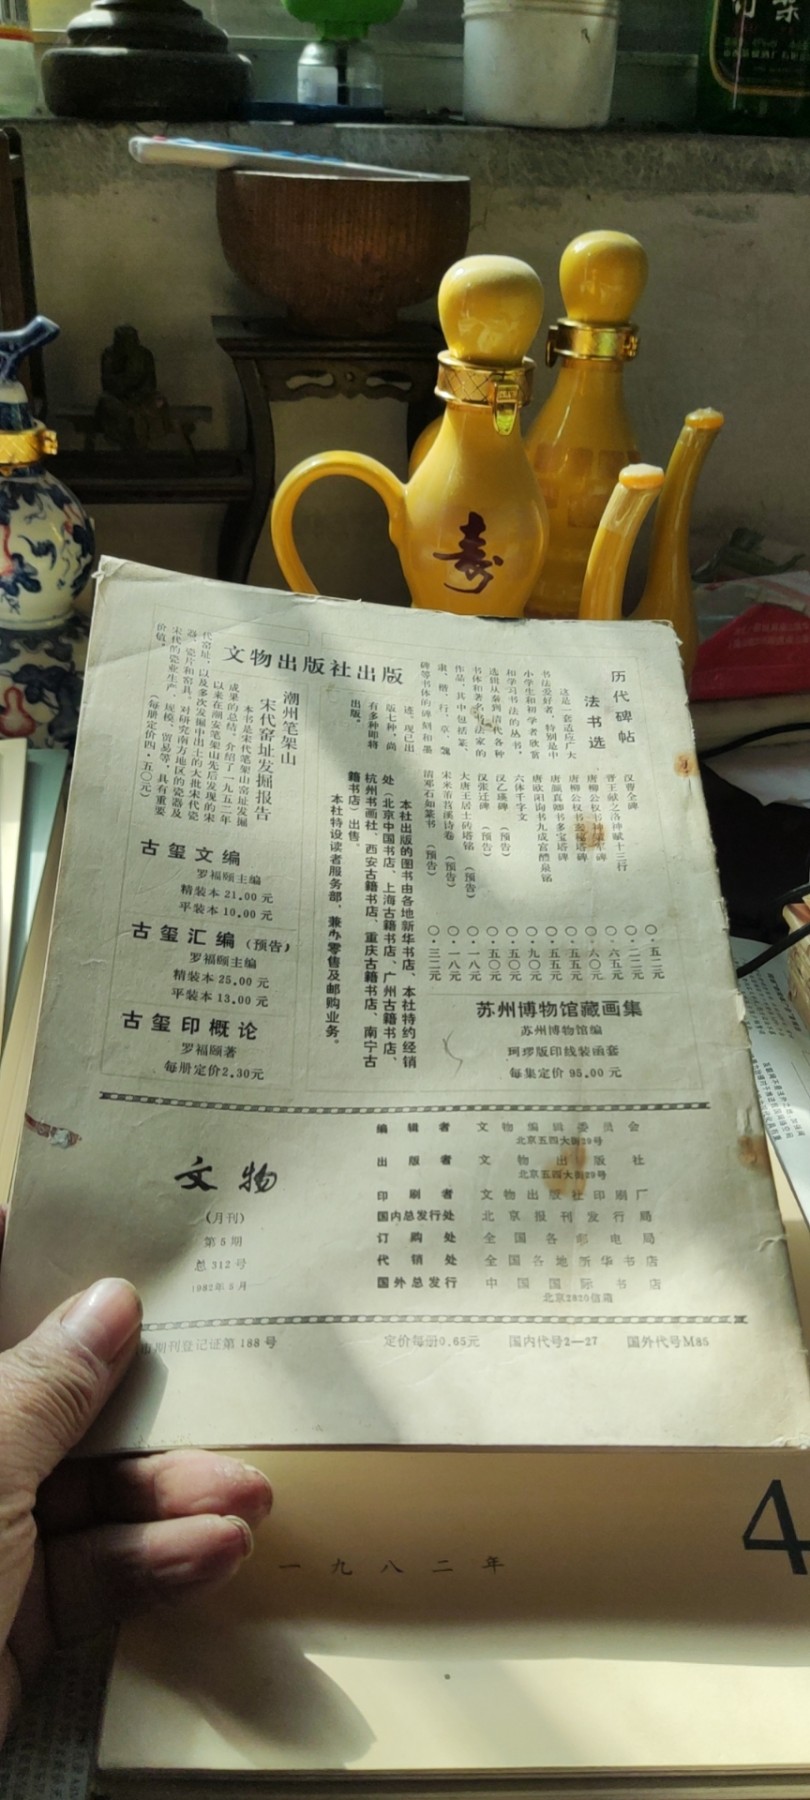 寿
文物出版社出版
历代碑帖
法书选
这是一套适应广大
书法爱好者，特别是中
小学生和初学者欣赏
和学习书法的丛书，
选辑从秦到清代各种
书体和著名书法家的
作品，其中包括篆、
隶、楷、行、草、魏
碑等书体的碑刻和墨
迹。现已出
版七种，尚
有多种即将
出版。
汉曹全碑
〇·五二元
晋王献之洛神赋十三行
〇·二二元
唐柳公权书神策军碑
〇·六五元
唐柳公权书玄秘塔碑
〇·六〇元
唐颜真卿书多宝塔碑
〇·五五元
唐欧阳询书九成宫醴泉铭
〇·五五元
六体千字文
〇·九〇元
汉乙瑛碑（预告）
〇·五〇元
汉张迁碑（预告）
〇·五〇元
大唐王居士砖塔铭（预告）
〇·一八元
宋米芾苕溪诗卷（预告）
〇·一八元
清邓石如篆书（预告）
〇·三二元
潮州笔架山
宋代窑址发掘报告
本书是宋代笔架山窑址发掘
成果的总结。介绍了一九五二年
以来在潮安笔架山先后发现的宋
代窑址，以及多次发掘中出土的大批宋代瓷
器、瓷片和窑具。对研究南方地区的瓷器及
宋代的瓷业生产、规模、贸易等，具有重要
价值。
（每册定价四·五〇元）
本社出版的图书由各地新华书店、本社特约经销
处（北京中国书店、上海古籍书店、广州古籍书店、
杭州书画社、西安古籍书店、重庆古籍书店、南宁古
籍书店）出售。
本社特设读者服务部，兼办零售及邮购业务。
古玺文编
罗福颐主编
精装本 21.00 元
平装本 10.00 元
古玺汇编（预告）
罗福颐主编
精装本 25.00 元
平装本 13.00 元
古玺印概论
罗福颐著
每册定价2.30元
苏州博物馆藏画集
苏州博物馆编
珂璆版印线装函套
每集定价 95.00 元
文物
（月刊）
第 5 期
总 312 号
1982年 5 月
编辑者 文物编辑委员会
北京五四大街29号
出版者 文物出版社
北京五四大街29号
印刷者 文物出版社印刷厂
国内总发行处 北京报刊发行局
订购处 全国各邮电局
代销处 全国各地新华书店
国外总发行 中国国际书店
北京2820信箱
市期刊登记证第 188 号 定价每册0.65元 国内代号2—27 国外代号M85
4
一九八二年